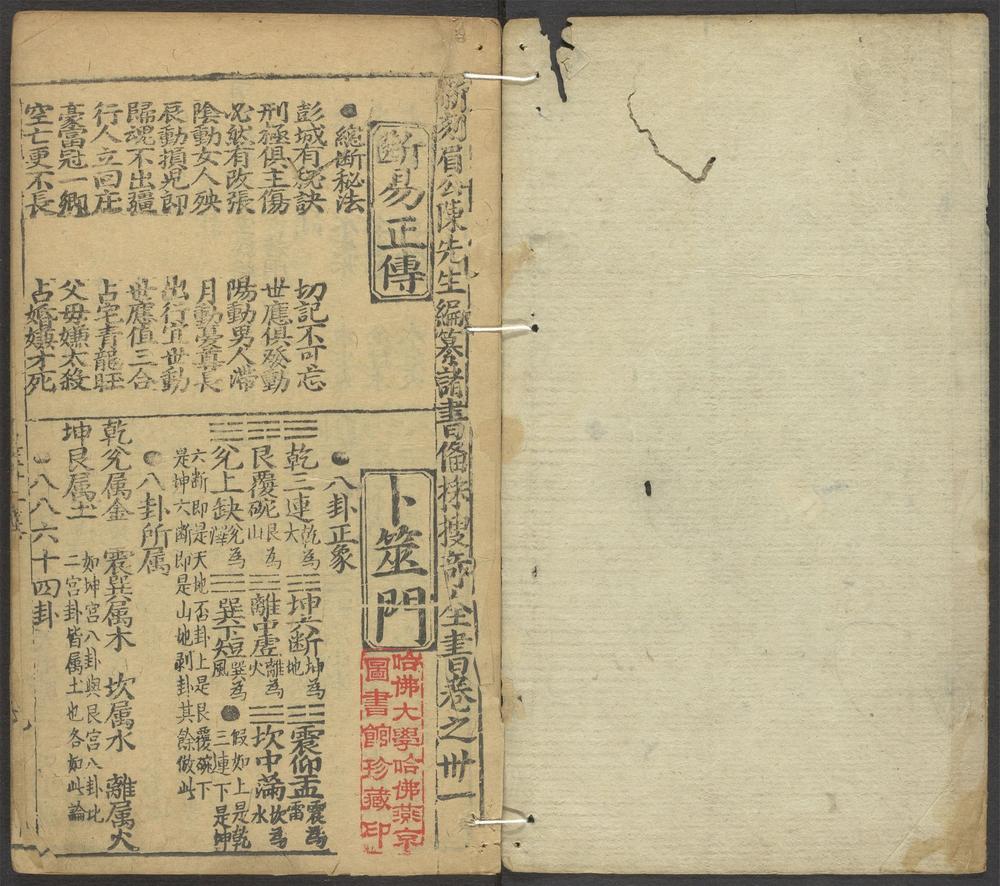 新刻眉公陳先生編纂諸書備採搜奇全書卷之卅一
斷易正傳
●總斷秘法
彭城有秘訣 切記不可忘
刑極俱主傷 世應俱發動
必然有改張 陽動男人滯
陰動女人殃 月動憂尊長
辰動損児郎 出行宜世動
歸魂不出疆 世應值三合
行人立回庄 占宅青龍旺
豪富冠一鄉 父母嫌太殺
空亡更不長 占婚嫌才死
卜筮門
哈佛大學哈佛燕京
圖書館珍藏印
●八卦正象
☰乾三連 乾為大 ☷坤六斷 坤為地 ☳震仰盂 震為雷
☶艮覆碗 艮為山 ☲離中虛 離為火 ☵坎中滿 坎為水
☱兌上缺 兌為澤 ☴巽下短 巽為風 ●假如上是乾
三連下是坤
六断即是天地否卦上是艮覆碗下
是坤六断即是山地剝卦其餘倣此
●八卦所属
乾兌属金 震巽属木 坎属水 離属火
坤艮属土 如坤宮八卦與艮宮八卦比
二宮卦皆属土也各如此論
●八八六十四卦